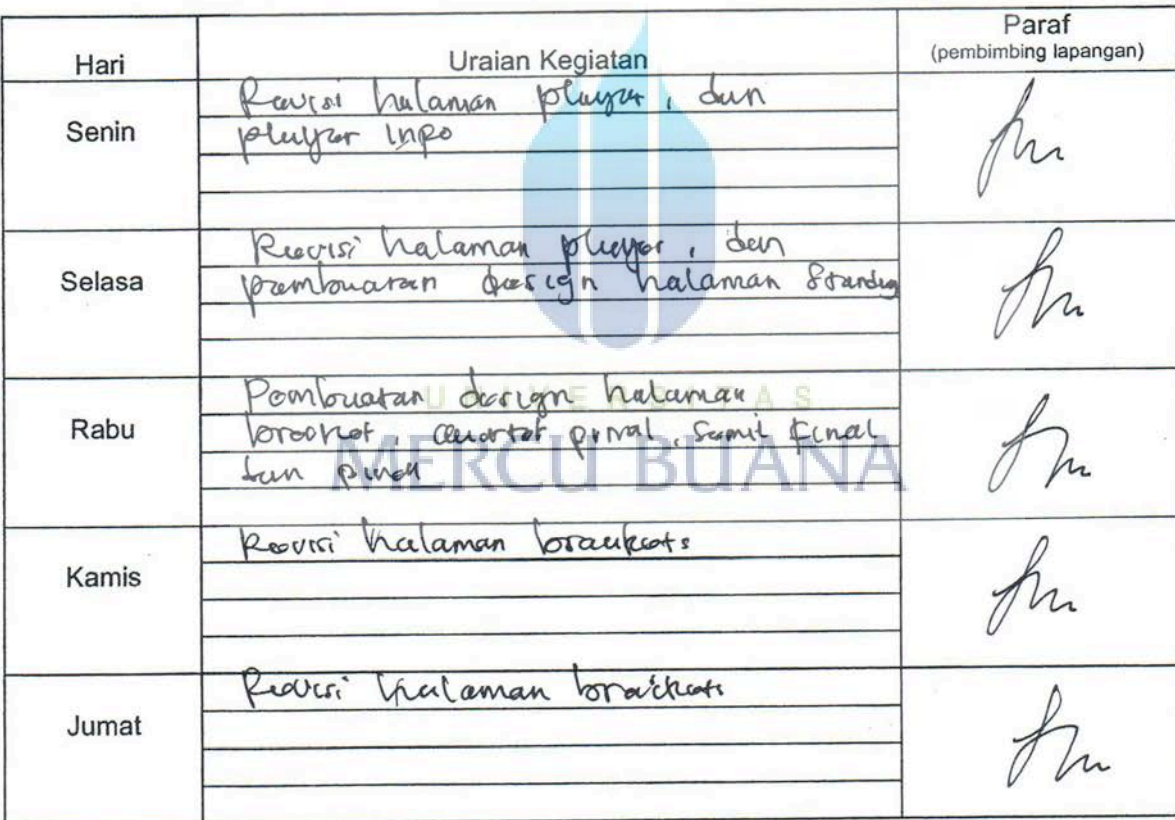 Hari
Uraian Kegiatan
Paraf
(pembimbing lapangan)
Senin
Revisi halaman player, dan
player info
Selasa
Revisi halaman player, dan
pembuatan design halaman Standing
Rabu
Pembuatan design halaman
bracket, quarter final, Semi Final
dan final
Kamis
Revisi halaman brackets
Jumat
Revisi halaman brackets
UNIVERSITAS
MERCU BUANA